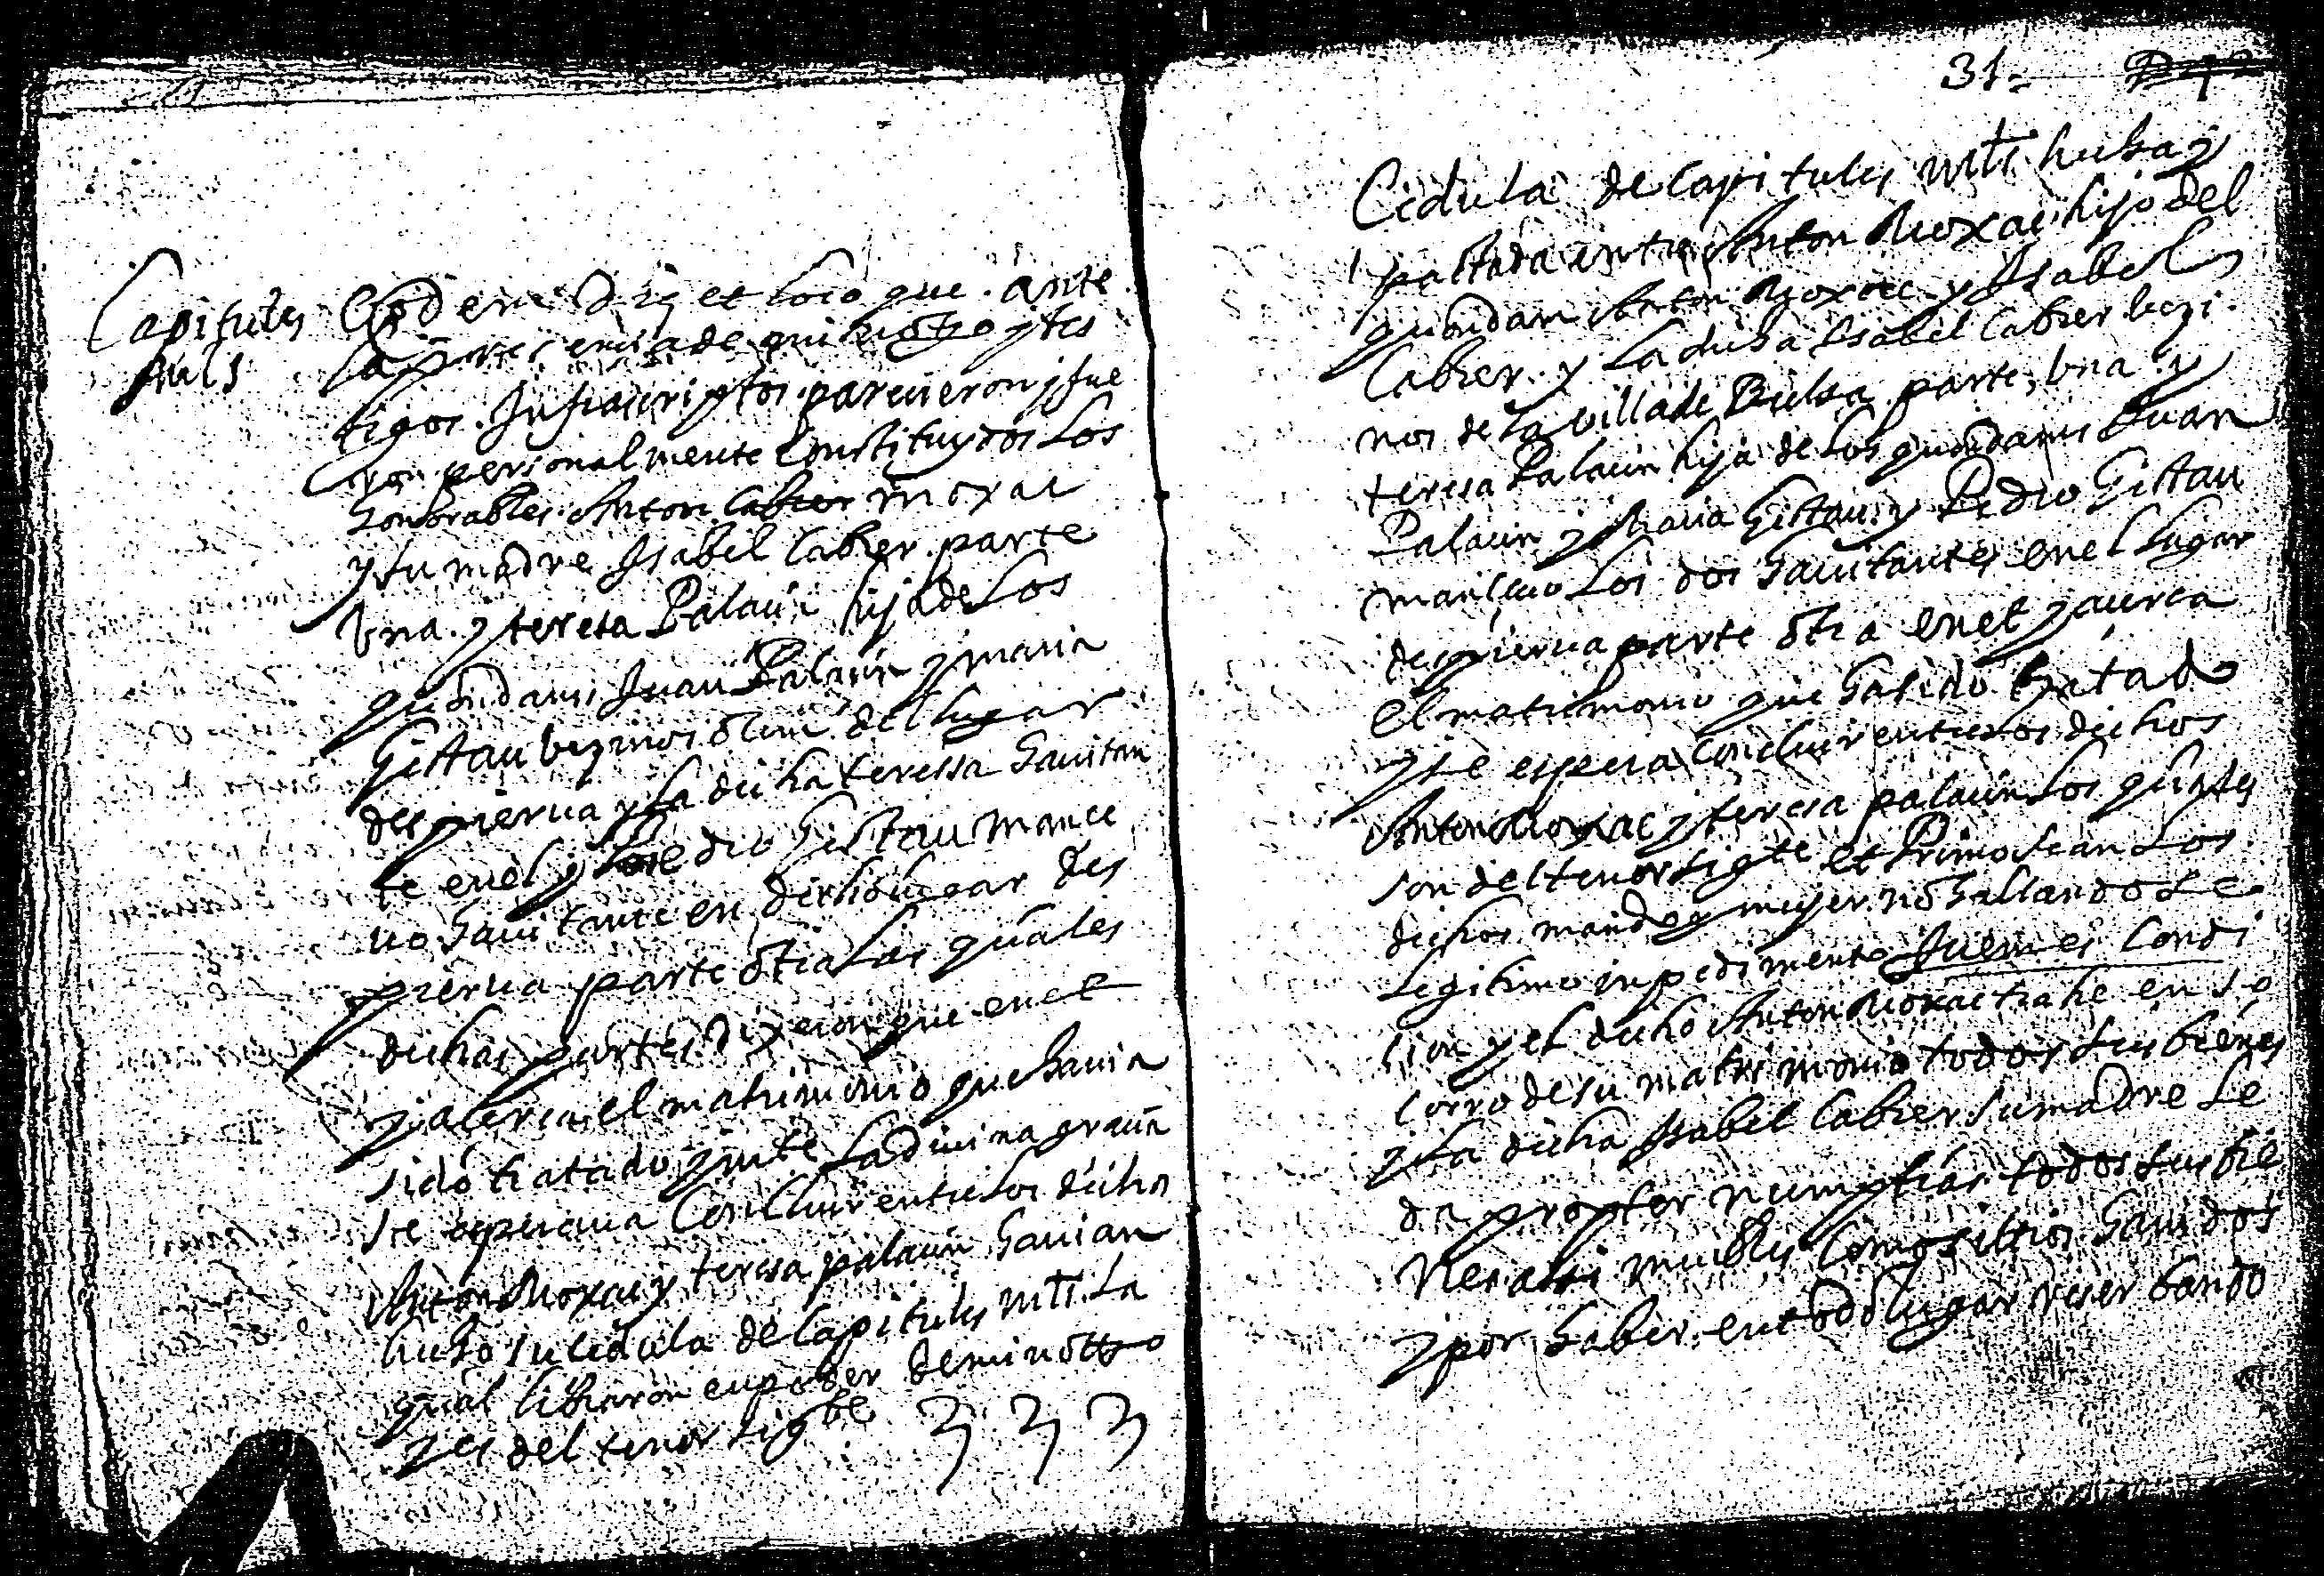 Capitules
mtls
Eodem die et loco que ante
la presencia de mi notro y tes
tigos infrascriptos parecieron y fue
ron personalmente constituydos los
honorables Anton Cabrer moxac
y su madre Isabel Cabrer parte
vna y teresa Palacin hija de los
quondams Juan Palacin y maria
Gistau vezinos olim del lugar
despierua y la dicha teressa hauitan
te en el y Pedro Gistau mance
uo hauitante en dicho lugar des
pierua parte otra las quales
dichas partes dixeron que en et
y acerca el matrimonio que hauia
sido tratado y mte la diuina gracia
se esperaua concluir entre los dichos
Anton Moxac y teresa palacin hauian
hecho su cedula de capitules mtls la
qual libraron en poder de mi notro
y es del tenor sigte
31
Cedula de capitules mtls hecha y
pactada entre Anton Moxac hijo del
quondam Anton Moxac y Isabel
Cabrer y la dicha Isabel Cabrer vezi
nos de la villa de Bielsa parte vna y
teresa Palacin hija de los quondams Juan
Palacin y Maria Gistau y Pedro Gistau
mancebo los dos hauitantes en el lugar
despierua parte otra en et y acerca
el matrimonio que ha sido tratado
y se espera concluir entre los dichos
Anton Moxac y teresa palacin los quales
son del tenor sigte et Primo sean los
dichos marido y mujer no hallandose
legitimo inpedimento Juemes condi
cion y el dicho Anton Moxac trahe en so
corro de su matrimonio todos sus bienes
y la dicha Isabel Cabrer su madre le
da propter numptias todos sus bie
nes assi muebles como sittios hauidos
y por haber en todo lugar reserbando